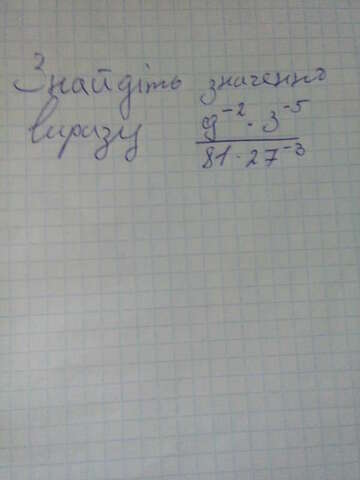 Знайдіть значення
виразу 9⁻² · 3⁻⁵ / 81 · 27⁻³